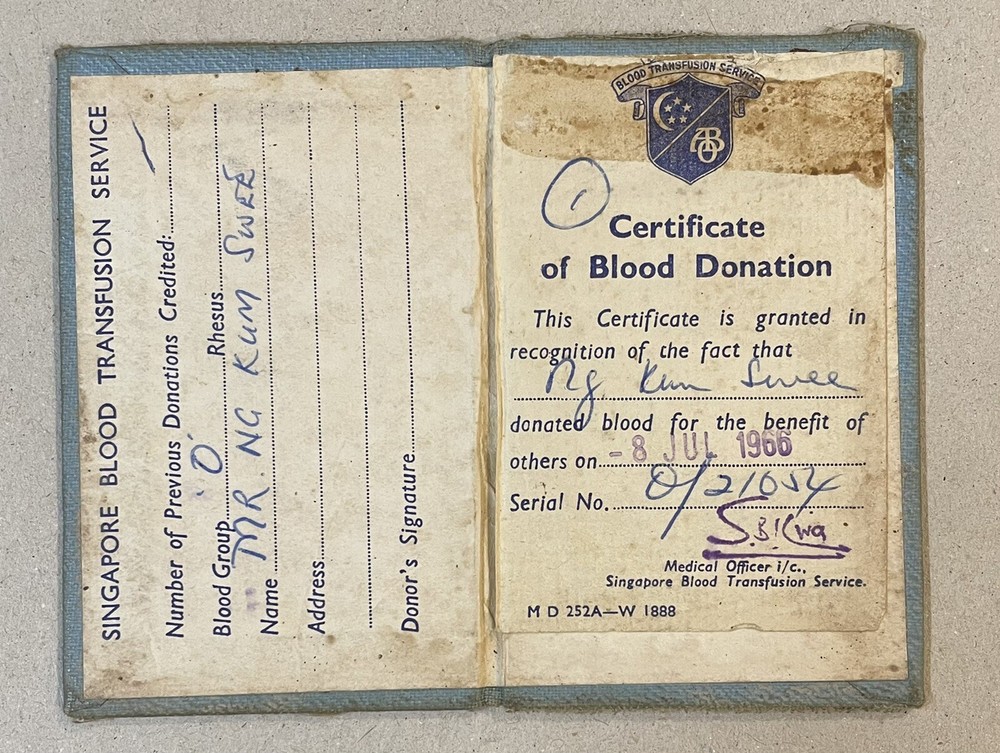 SINGAPORE BLOOD TRANSFUSION SERVICE
Number of Previous Donations Credited:
Blood Group "O" Rhesus
Name MR. NG KUM SWEE
Address
Donor's Signature
BLOOD TRANSFUSION SERVICE
ABO
1
Certificate
of Blood Donation
This Certificate is granted in
recognition of the fact that
Ng Kum Swee
donated blood for the benefit of
others on - 8 JUL 1966
Serial No. O/21054
S.B. Kwa
Medical Officer i/c.,
Singapore Blood Transfusion Service.
M D 252A—W 1888